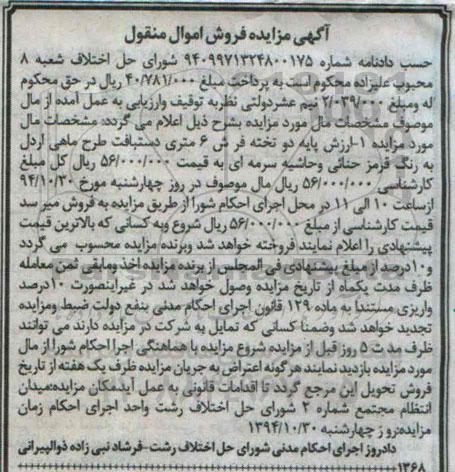 آگهی مزایده فروش اموال منقول
حسب دادنامه شماره ۹۴۰۹۹۷۱۳۲۴۸۰۰۱۷۵ شورای حل اختلاف شعبه ۸
محبوب علیزاده محکوم است به پرداخت مبلغ ۴۰/۷۸۱/۰۰۰ ریال در حق محکوم
له ومبلغ ۲/۰۳۹/۰۰۰ نیم عشردولتی نظربه توقیف وارزیابی به عمل آمده از مال
موصوف مشخصات مال مورد مزایده بشرح ذیل اعلام می گردد: مشخصات مال
مورد مزایده ۱-ارزش پایه دو تخته فر ش ۶ متری دستبافت طرح ماهی اردل
به رنگ قرمز حنائی وحاشیه سرمه ای به قیمت ۵۶/۰۰۰/۰۰۰ ریال کل مبلغ
کارشناسی ۵۶/۰۰۰/۰۰۰ ریال مال موصوف در روز چهارشنبه مورخ ۹۴/۱۰/۳۰
ازساعت ۱۰ الی ۱۱ در محل اجرای احکام شورا از طریق مزایده به فروش میر سد
قیمت کارشناسی از مبلغ ۵۶/۰۰۰/۰۰۰ ریال شروع وبه کسانی که بالاترین قیمت
پیشنهادی را اعلام نمایند فروخته خواهد شد وبرنده مزایده محسوب می گردد
و۱۰درصد از مبلغ پیشنهادی فی المجلس از برنده مزایده اخذ ومابقی ثمن معامله
ظرف مدت یکماه از تاریخ مزایده وصول خواهد شد در غیراینصورت ۱۰درصد
واریزی مستندا به ماده ۱۲۹ قانون اجرای احکام مدنی بنفع دولت ضبط ومزایده
تجدید خواهد شد وضمنا کسانی که تمایل به شرکت در مزایده دارند می توانند
ظرف مد ت ۵ روز قبل از مزایده شروع مزایده با هماهنگی اجرا احکام شورا از مال
مورد مزایده بازدید نمایند هرگونه اعتراض به جریان مزایده ظرف یک هفته از تاریخ
فروش تحویل این مرجع گردد تا اقدامات قانونی به عمل آیدمکان مزایده:میدان
انتظام مجتمع شماره ۲ شورای حل اختلاف رشت واحد اجرای احکام زمان
مزایده:رو ز چهارشنبه ۱۳۹۴/۱۰/۳۰
دادروز اجرای احکام مدنی شورای حل اختلاف رشت-فرشاد نبی زاده ذوالپیرانی
۳۶۸